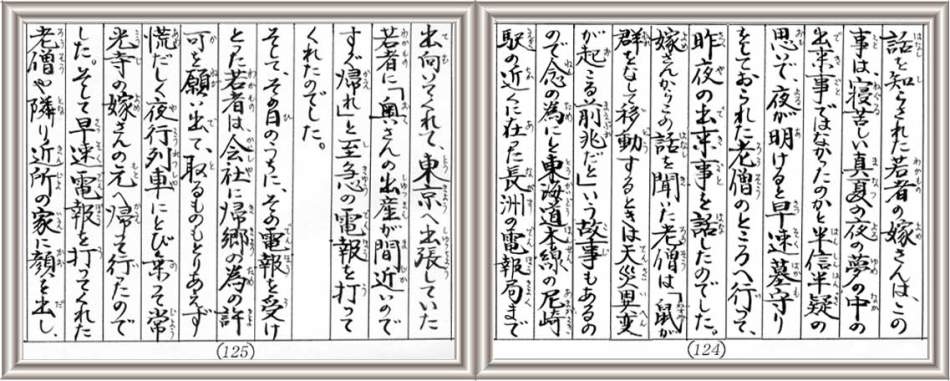 話を知らされた若者の嫁さんは、この
事は、寝苦しい真夏の夜の夢の中の
出来事ではなかったのかと半信半疑の
思いで、夜が明けると早速墓守り
をしておられた老僧のところへ行って、
昨夜の出来事を話したのでした。
嫁さんからこの話を聞いた老僧は「鼠が
群をなして移動するときは天災異変
が起こる前兆だと」いう故事もあるの
で念の為にと東海道本線の尼崎
駅の近くに在った長洲の電報局まで
(124)
出向いてくれて、東京へ出張していた
若者に「奥さんの出産が間近いので
すぐ帰れ」と至急の電報を打って
くれたのでした。
そして、その日のうちに、その電報を受け
とった若者は、会社に帰郷の為の許
可を願い出て、取るものもとりあえず
慌だしく夜行列車にとび乗って常
光寺の嫁さんの元へ帰って行ったので
した。そして早速電報を打ってくれた
老僧や隣り近所の家に顔を出し、
(125)